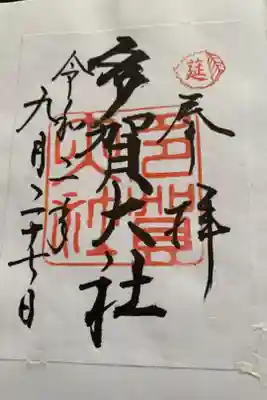 奉拝
多賀大社
令和二年
九月二十七日
莚
多賀大社